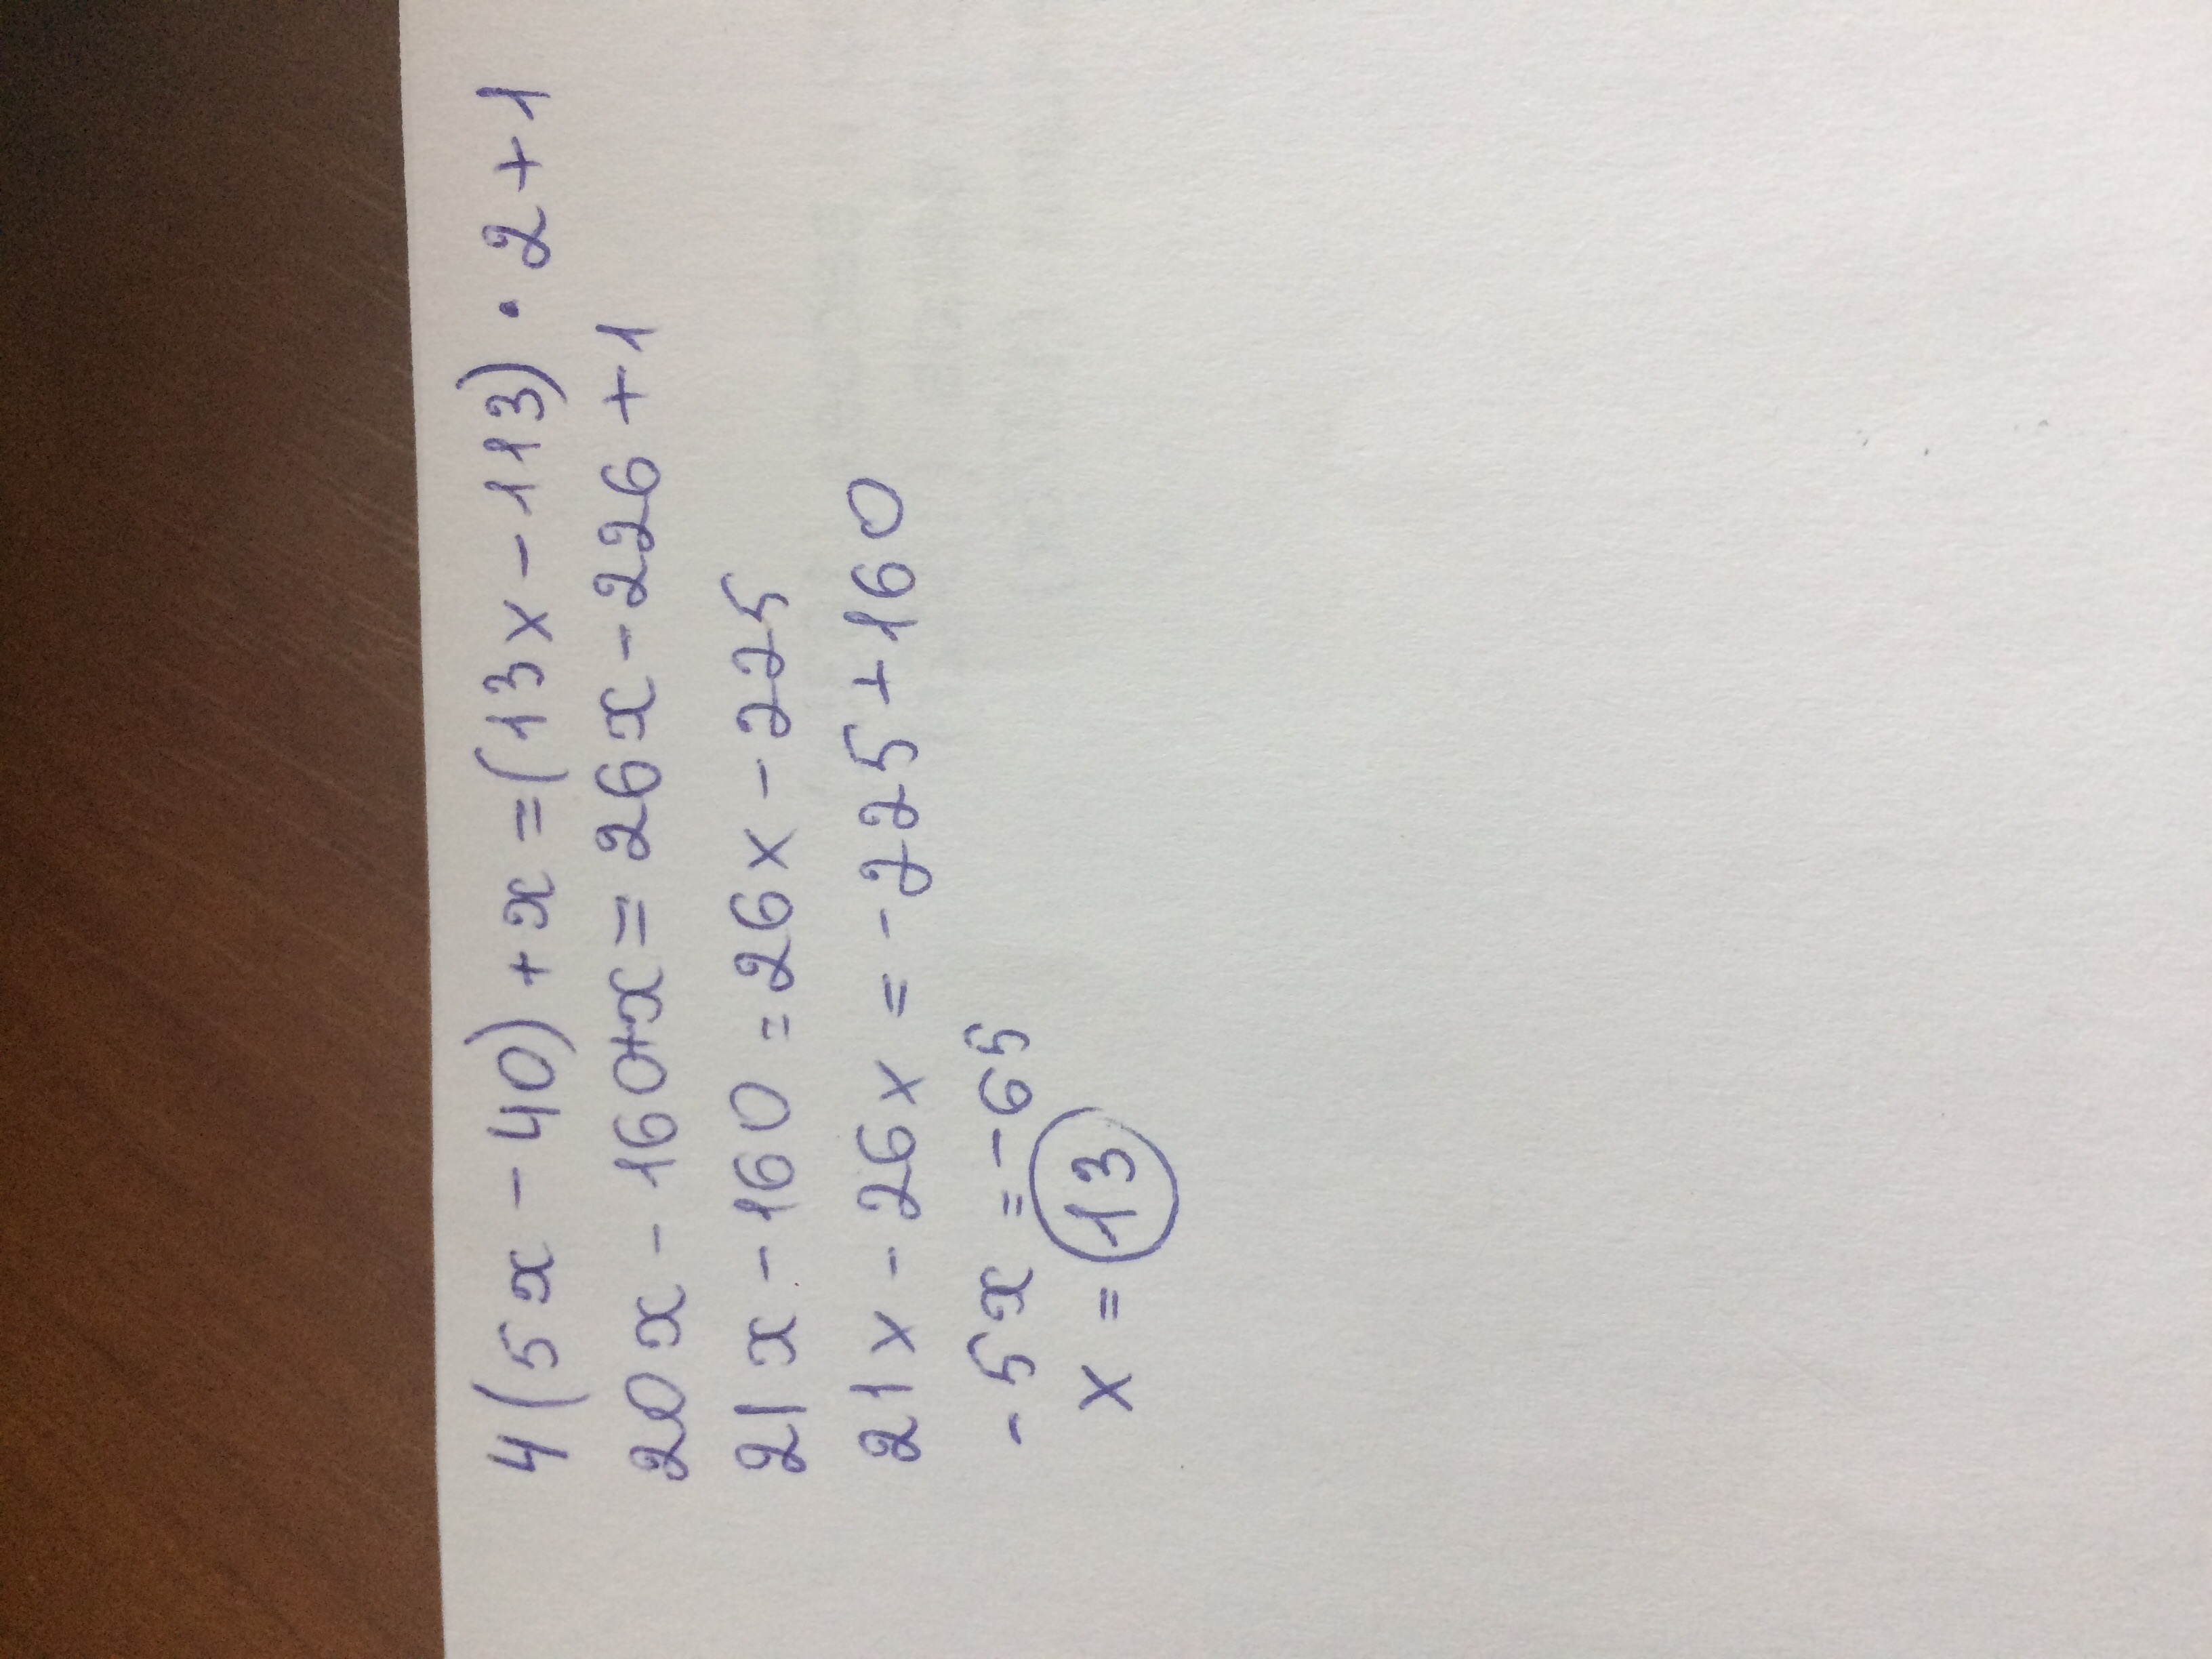 4(5x-40)+x=(13x-113)·2+1
20x-160+x=26x-226+1
21x-160=26x-225
21x-26x=-225+160
-5x=-65
x=13